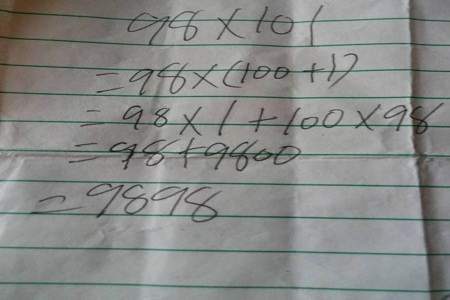 98×101
=98×(100+1)
=98×1+100×98
=98+9800
=9898